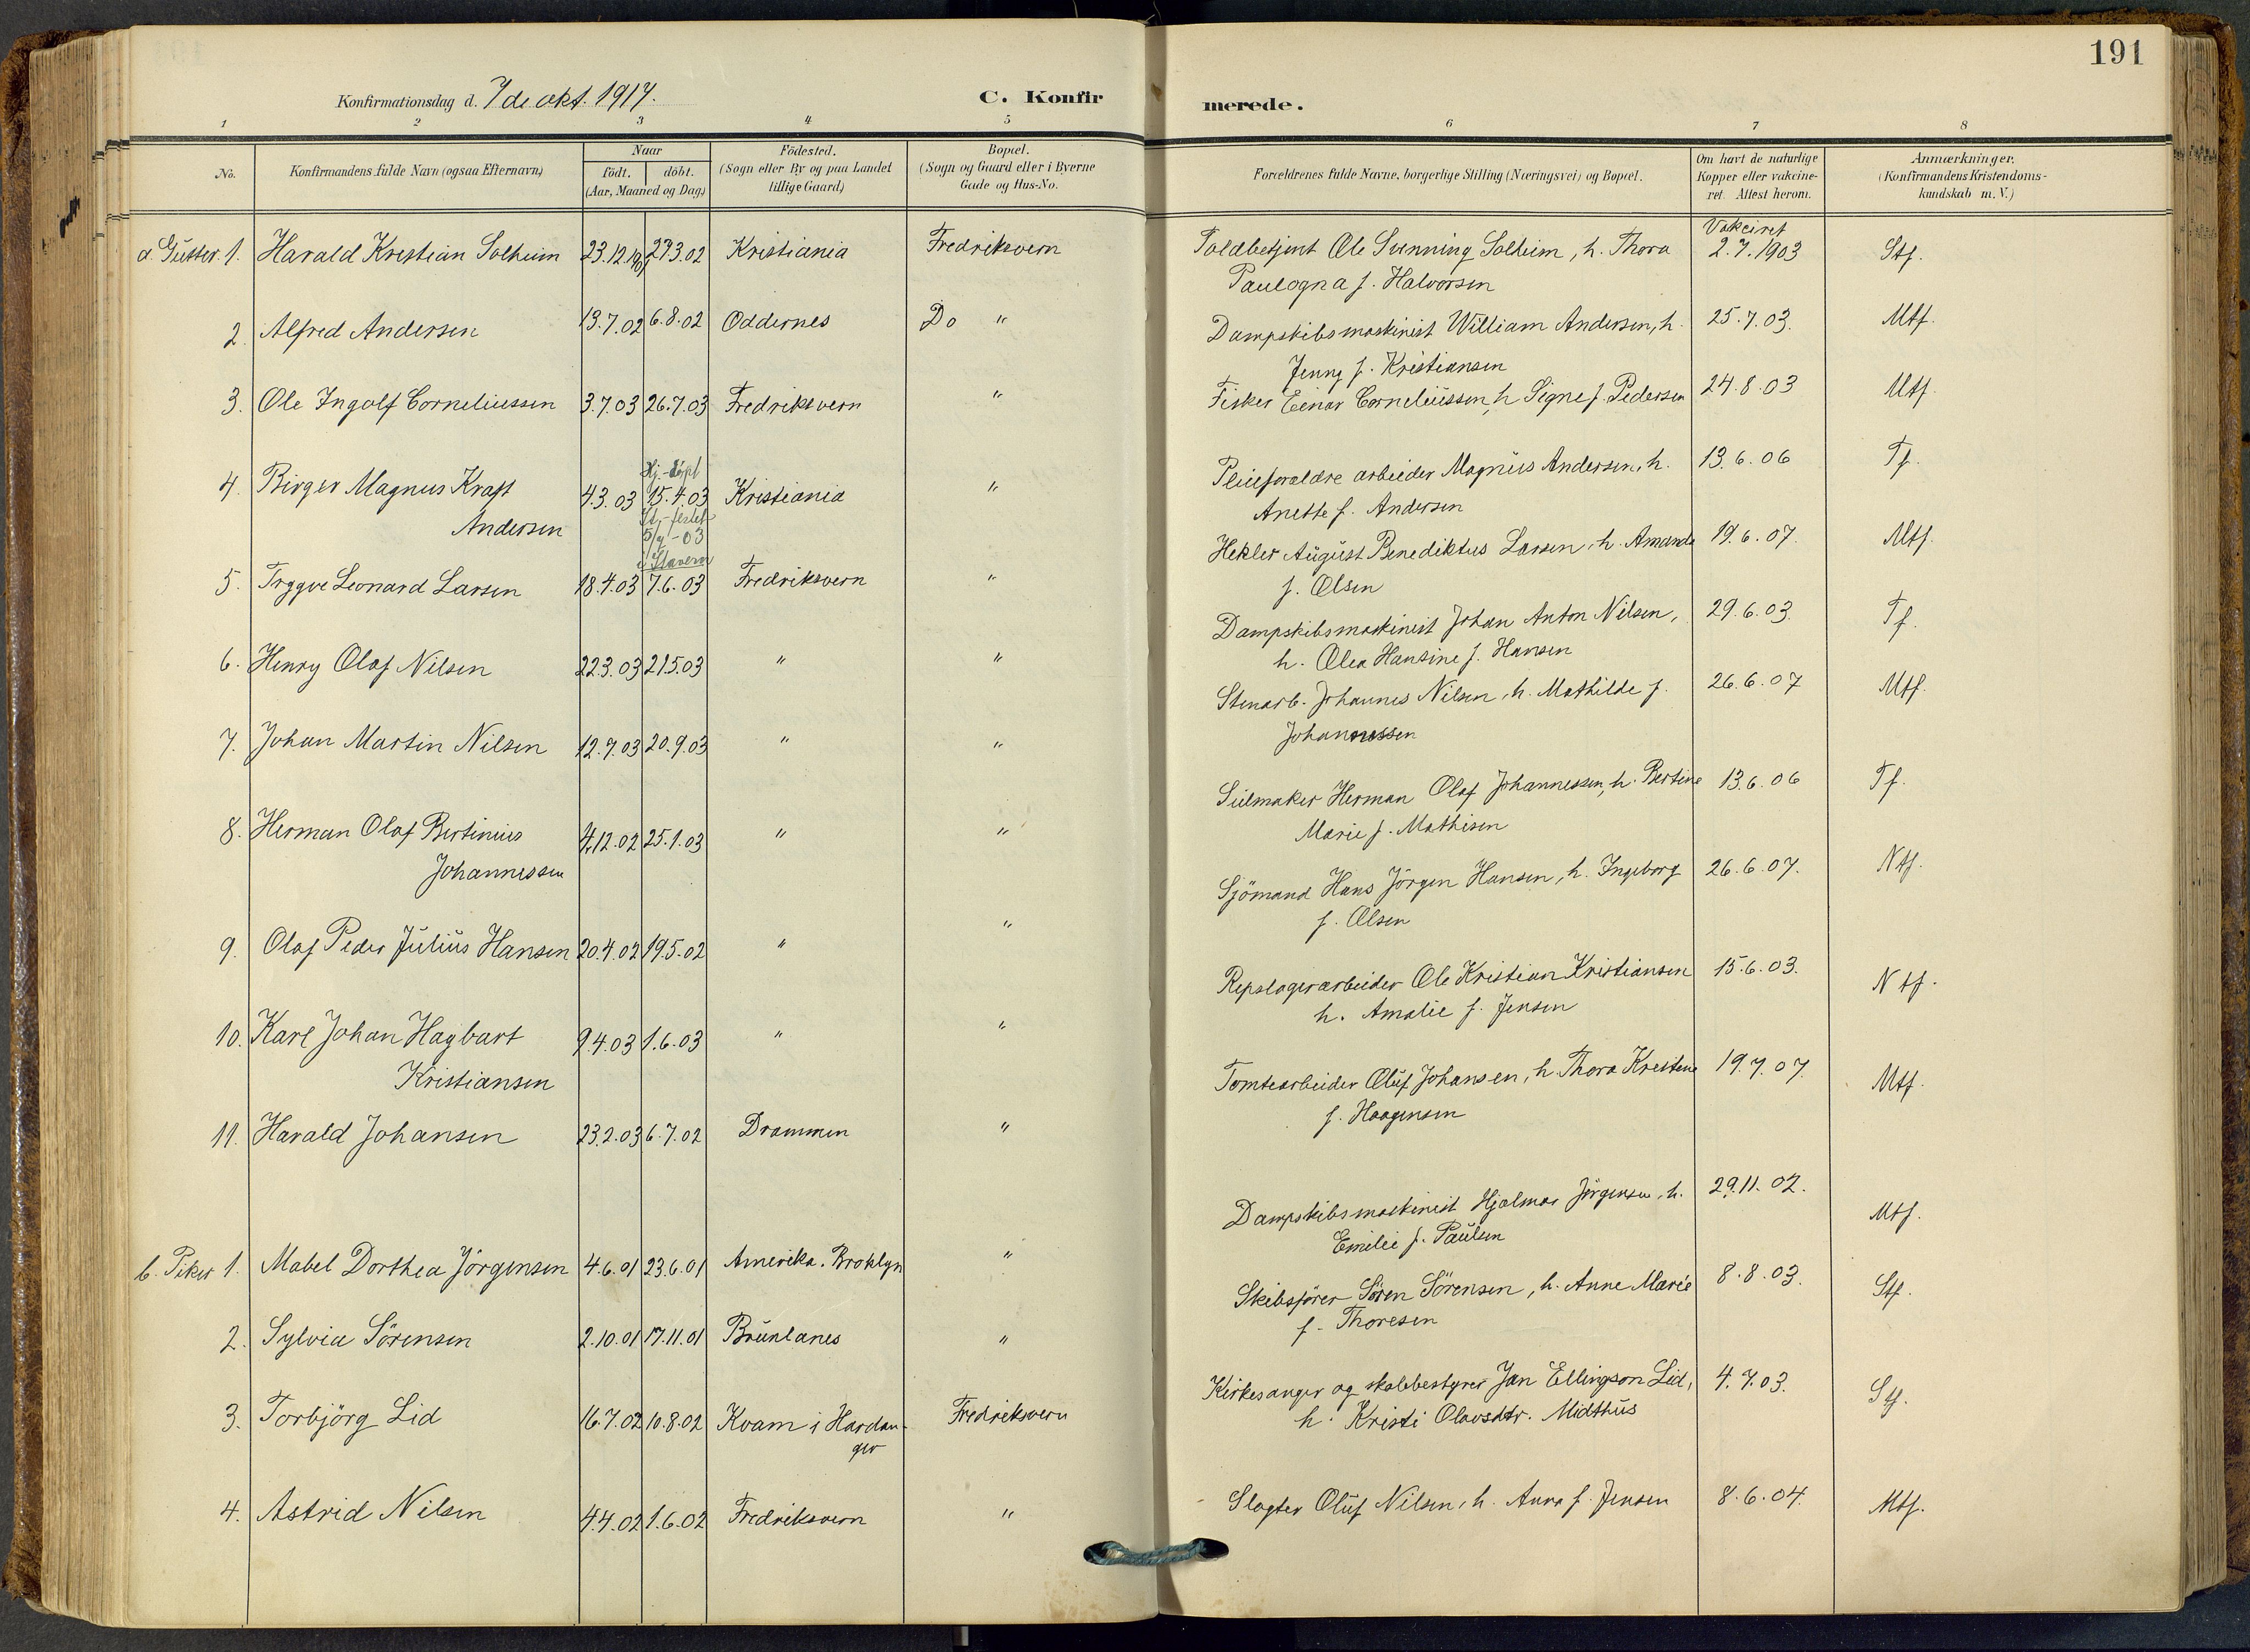 191
Konfirmationsdag d. 7 de okt. 1917.
C. Konfirmerede.
1 2 3 4 5 6 7 8
No.
Konfirmandens fulde Navn (ogsaa Efternavn)
Naar
födt. döbt.
(Aar, Maaned og Dag)
Födested.
(Sogn eller By og paa Landet
tillige Gaard)
Bopæl.
(Sogn og Gaard eller i Byerne
Gade og Hus-No.
Forældrenes fulde Navne, borgerlige Stilling (Næringsvei) og Bopæl.
Om havt de naturlige
Kopper eller vakcine-
ret. Attest herom.
Anmærkninger.
(Konfirmandens Kristendoms-
kundskab m. V.)
a. Gutter. 1. Harald Kristian Solheim 23.12.1901 27.3.02 Kristiania Fredriksvern
Toldbetjent Ole Sunning Solheim, h. Thora
Paulogna f. Halvorsen
Vakciret
2.7.1903 Stf.
2. Alfred Andersen 13.7.02 6.8.02 Oddernes Do "
Dampskibsmaskinist William Andersen, h.
Jenny f. Kristiansen
25.7.03. Mtf.
3. Ole Ingolf Corneliussen 3.7.03 26.7.03 Fredriksvern "
Fisker Einar Corneliussen, h. Signe f. Pedersen 24.8.03 Mtf.
4. Birger Magnus Kraft
Andersen
4.3.03
Hj-döpt
15.4.03
St.-festet
5/7-03
i Stavern
Kristiania "
Pleieforældre arbeider Magnus Andersen, h.
Anette f. Andersen
13.6.06 Tf.
5. Trygve Leonard Larsen 18.4.03 7.6.03 Fredriksvern "
Hekler August Benediktus Larsen, h. Amanda
f. Olsen
19.6.07. Mtf.
6. Henry Olaf Nilsen 22.3.03 21.5.03 " "
Dampskibsmaskinist Johan Anton Nilsen,
h. Olea Hansine f. Hansen
29.6.03. Tf.
7. Johan Martin Nilsen 12.7.03 20.9.03 " "
Stenarb. Johannes Nilsen, h. Mathilde f.
Johannessen
26.6.07 Mtf.
8. Herman Olaf Bertinius
Johannessen
4.12.02 25.1.03 " "
Seilmaker Herman Olaf Johannessen, h. Bertine
Marie f. Mathisen
13.6.06 Tf.
9. Olaf Peder Julius Hansen 20.4.02 19.5.02 " "
Sjömand Hans Jörgen Hansen, h. Ingeborg
f. Olsen
26.6.07. Ntf.
10. Karl Johan Hagbart
Kristiansen
9.4.03 1.6.03 " "
Repslagerarbeider Ole Kristian Kristiansen
h. Amalie f. Jensen
15.6.03. Ntf.
11. Harald Johansen 23.2.03 6.7.02 Drammen "
Tomtearbeider Oluf Johansen, h. Thora Kristine
f. Haagensen
19.7.07. Mtf.
b. Piker 1. Mabel Dorthea Jörgensen 4.6.01 23.6.01 Amerika. Broklyn "
Dampskibsmaskinist Hjalmar Jörgensen, h.
Emilie f. Paulsen
29.11.02. Mtf.
2. Sylvia Sörensen 2.10.01 17.11.01 Brunlanes "
Skibsförer Sören Sörensen, h. Anne Marie
f. Thoresen
8.8.03. Stf.
3. Torbjörg Lid 16.7.02 10.8.02 Kvam i Hardan-
ger
Fredriksvern
Kirkesanger og skolebestyrer Jan Ellingson Lid,
h. Kristi Olavsdtr. Midthus
4.7.03. Stf.
4. Astrid Nilsen 4.4.02 1.6.02 Fredriksvern "
Slagter Oluf Nilsen, h. Anna f. Jensen 8.6.04. Mtf.